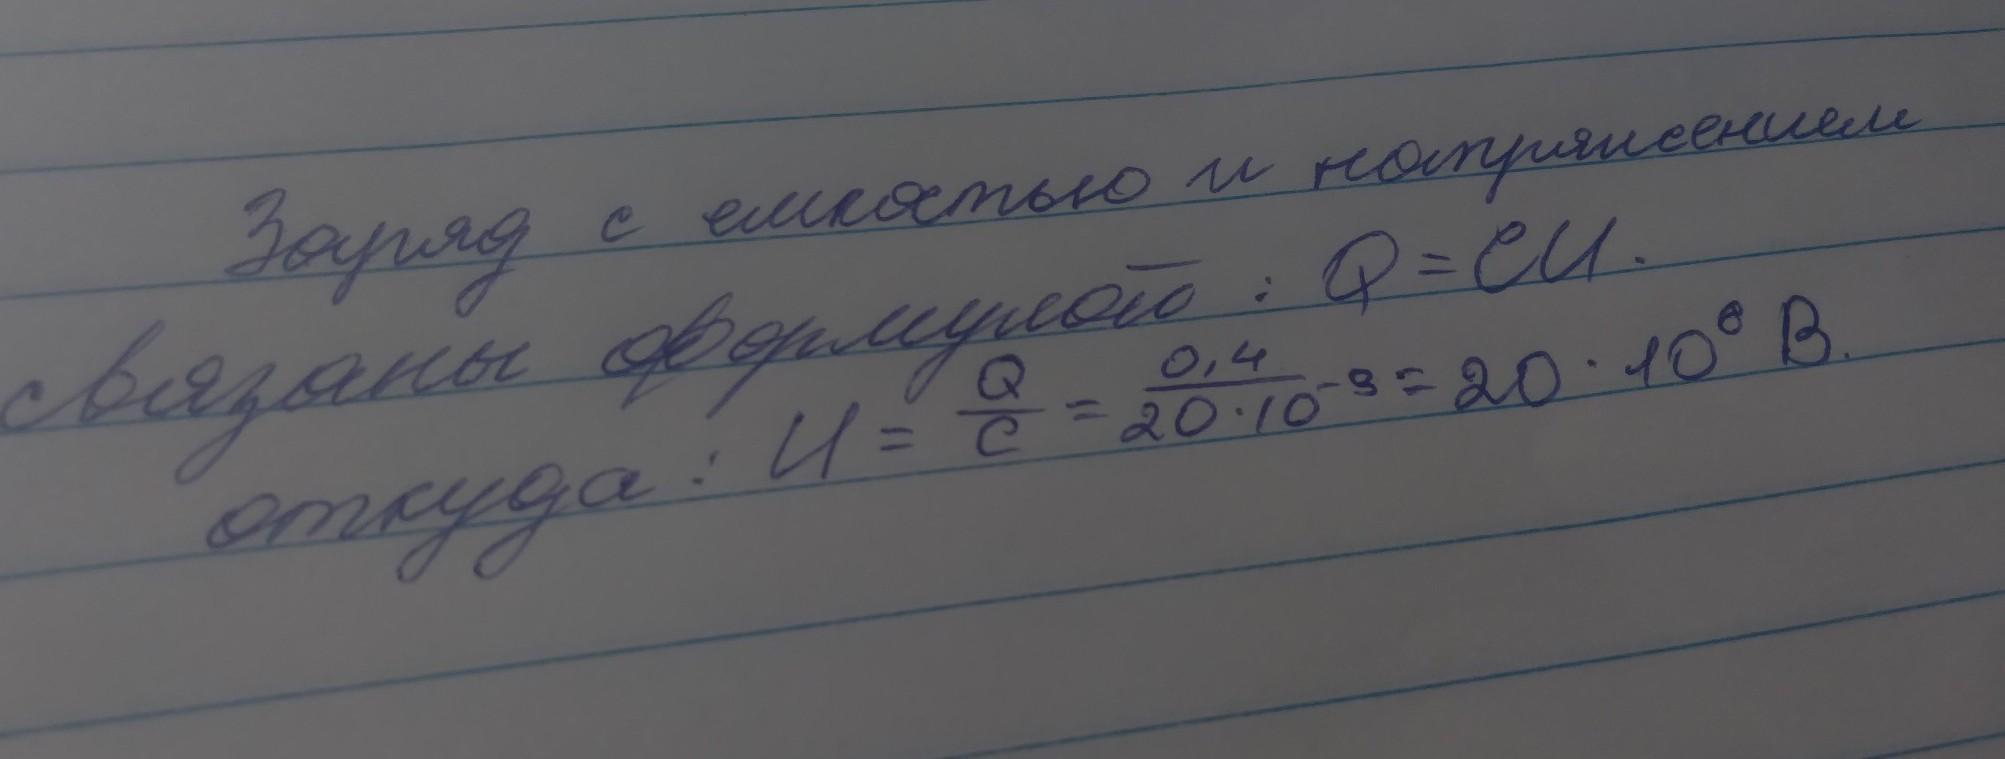 Заряд с емкостью и напряжением
связаны формулой: Q = CU.
откуда: U = Q/C = 0,4/20·10⁻⁹ = 20 · 10⁶ В.